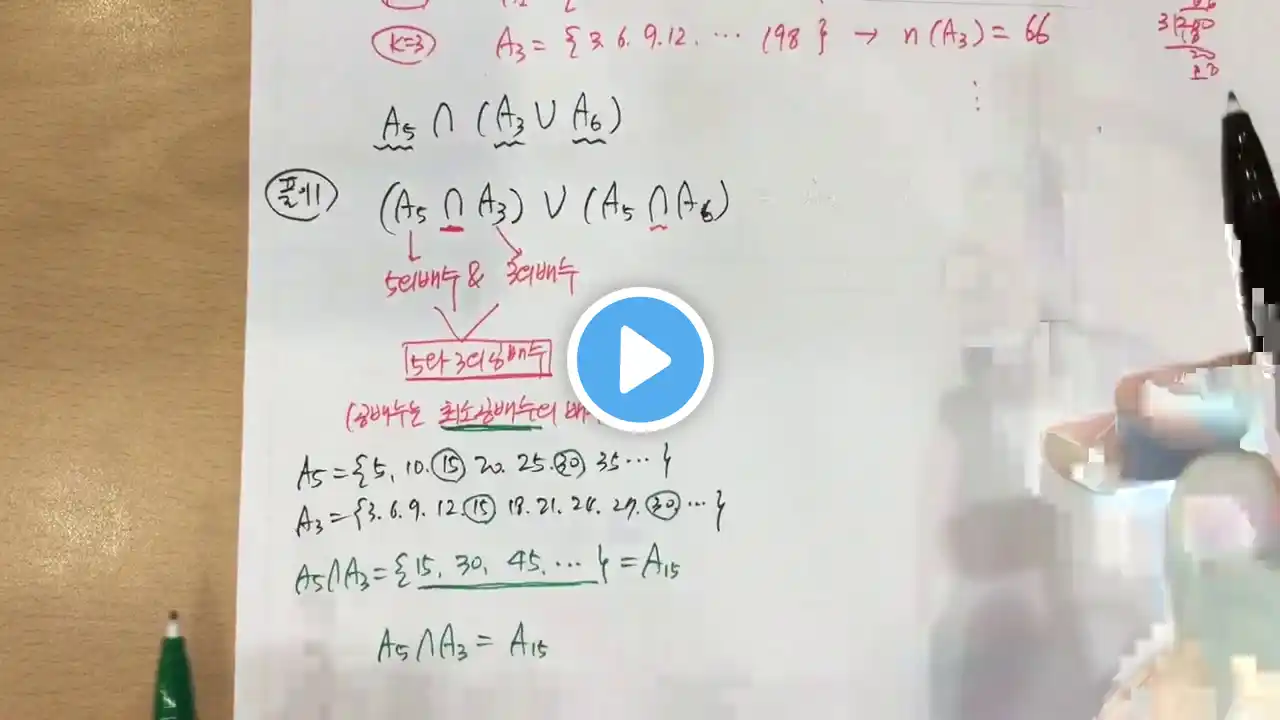 K=3 A₃ = { 3. 6. 9. 12. ⋯ 198 } → n(A₃) = 66
A₅ ∩ (A₃ ∪ A₆)
풀이1 (A₅ ∩ A₃) ∪ (A₅ ∩ A₆)
5의배수 & 3의배수
5와 3의공배수
(공배수는 최소공배수의
A₅ = {5, 10. 15 20. 25. 30 35 ⋯ }
A₃ = {3. 6. 9. 12. 15 18. 21. 24. 27. 30 ⋯ }
A₅∩A₃ = { 15, 30, 45, ⋯ } = A₁₅
A₅∩A₃ = A₁₅